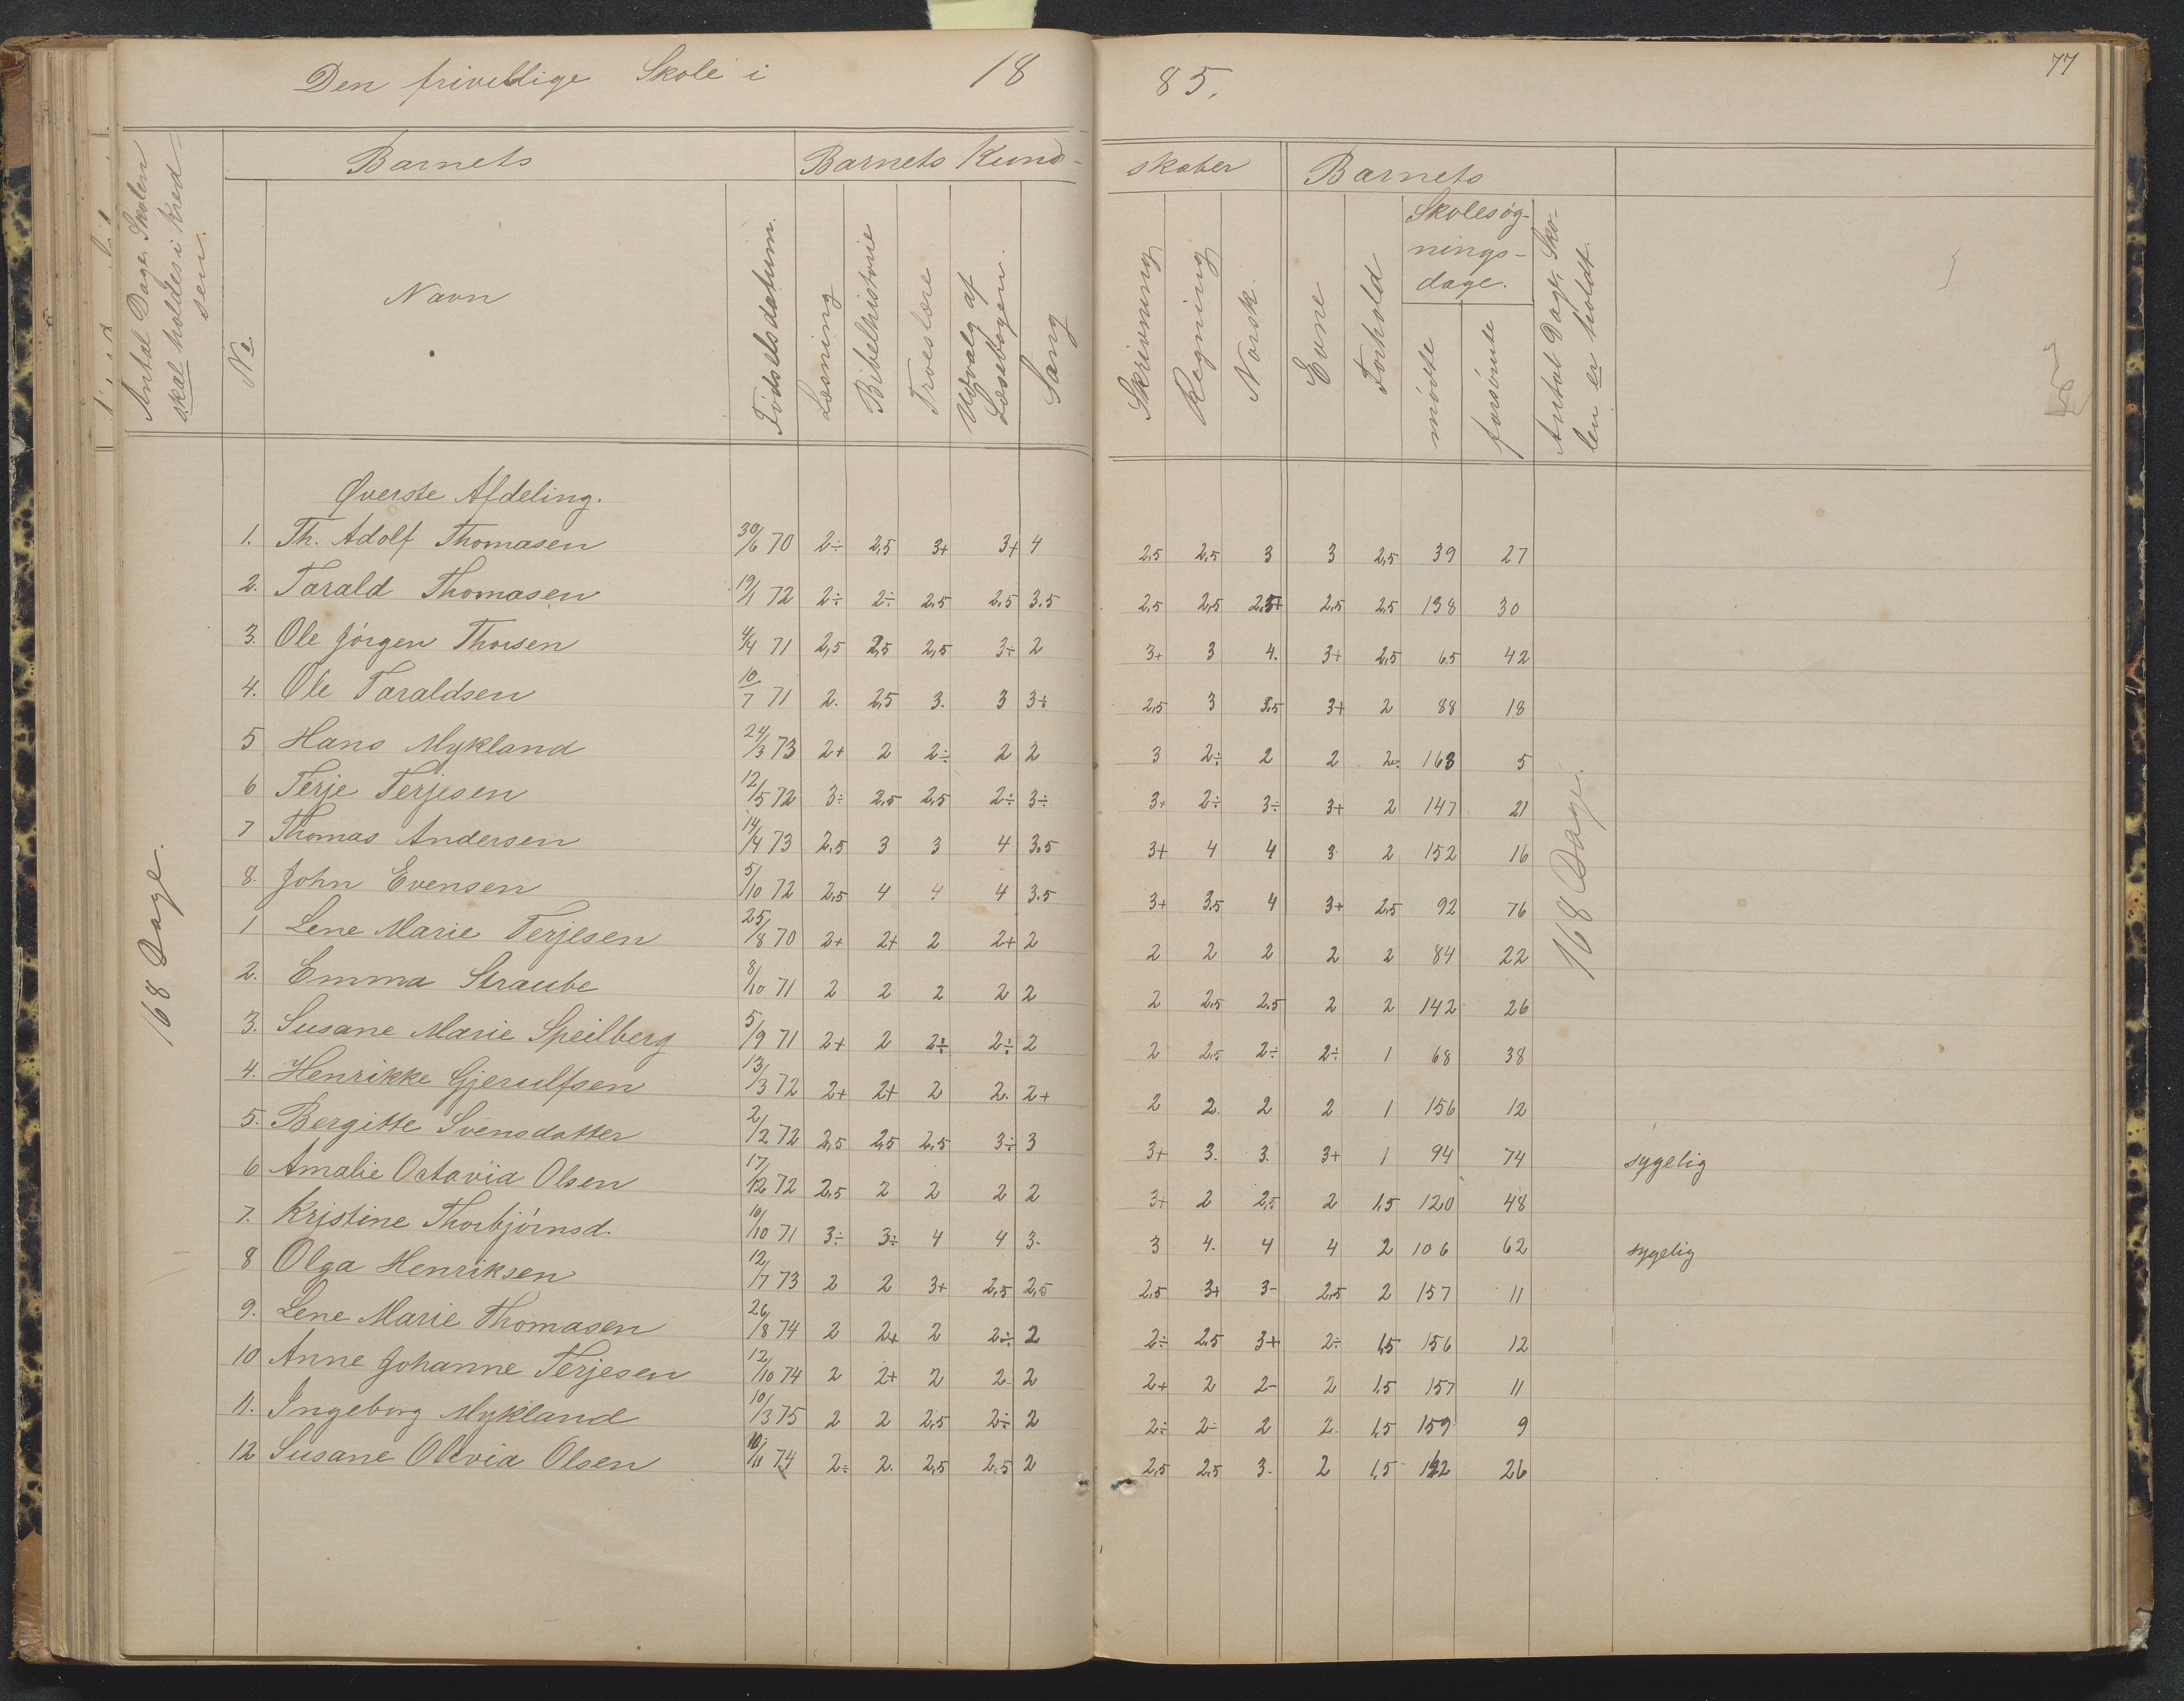 Den frivillige Skole i 1885.
77
Antal Dage, Skolen skal holdes i Kredsen.
Barnets
Barnets Kundskaber
Barnets
No.
Navn
Fødselsdatum.
Læsning
Bibelhistorie
Troeslære
Udvalg af Læsebogen.
Sang
Skrivning
Regning
Norsk.
Evne
Forhold
Skolesøgningsdage.
mødte
forsømte
Antal Dage, Skolen er holdt.
168 Dage.
168 Dage.
Øverste Afdeling.
1. Th. Adolf Thomasen 30/6 70 2÷ 2,5 3+ 3+ 4 2,5 2,5 3 3 2,5 39 27
2. Tarald Thomasen 19/1 72 2÷ 2÷ 2,5 2,5 3.5 2,5 2,5 2,5+ 2,5 2,5 138 30
3. Ole Jörgen Thorsen 4/4 71 2,5 2,5 2,5 3÷ 2 3+ 3 4. 3+ 2,5 65 42
4. Ole Taraldsen 10/7 71 2. 2,5 3. 3 3÷ 2,5 3 3,5 3+ 2 88 18
5 Hans Mykland 24/3 73 2+ 2 2÷ 2 2 3 2÷ 2 2 2÷ 163 5
6 Terje Terjesen 12/5 72 3÷ 2,5 2,5 2÷ 3÷ 3+ 2÷ 3÷ 3+ 2 147 21
7 Thomas Andersen 14/4 73 2,5 3 3 4 3.5 3+ 4 4 3 2 152 16
8. John Evensen 5/10 72 2,5 4 4 4 3.5 3+ 3,5 4 3+ 2,5 92 76
1 Lene Marie Terjesen 25/8 70 2+ 2+ 2 2+ 2 2 2 2 2 2 84 22
2. Emma Straube 8/10 71 2 2 2 2 2 2 2,5 2,5 2 2 142 26
3. Susane Marie Speilberg 5/9 71 2+ 2 2÷ 2÷ 2 2 2,5 2÷ 2÷ 1 68 38
4. Henrikke Gjerulfsen 13/3 72 2+ 2+ 2 2. 2+ 2 2. 2 2 1 156 12
5. Bergitte Svensdatter 2/2 72 2,5 2,5 2,5 3÷ 3 3+ 3. 3. 3+ 1 94 74 sygelig
6 Amalie Octavia Olsen 17/12 72 2,5 2 2 2 2 3+ 2 2,5 2 1,5 120 48
7. Kristine Thorbjörnsd. 10/10 71 3÷ 3÷ 4 4 3- 3 4. 4 4 2 106 62 sygelig
8 Olga Henriksen 12/7 73 2 2 3+ 2,5 2,5 2,5 3+ 3- 2,5 2 157 11
9. Lene Marie Thomasen 26/8 74 2 2+ 2 2÷ 2 2÷ 2,5 3+ 2÷ 1,5 156 12
10 Anne Johanne Terjesen 12/10 74 2 2+ 2 2- 2 2+ 2 2- 2 1,5 157 11
11. Ingeborg Mykland 10/3 75 2 2 2,5 2÷ 2 2÷ 2- 2 2. 1,5 159 9
12 Susane Olivia Olsen 10/11 74 2÷ 2. 2,5 2,5 2 2,5 2,5 3- 2 1,5 142 26